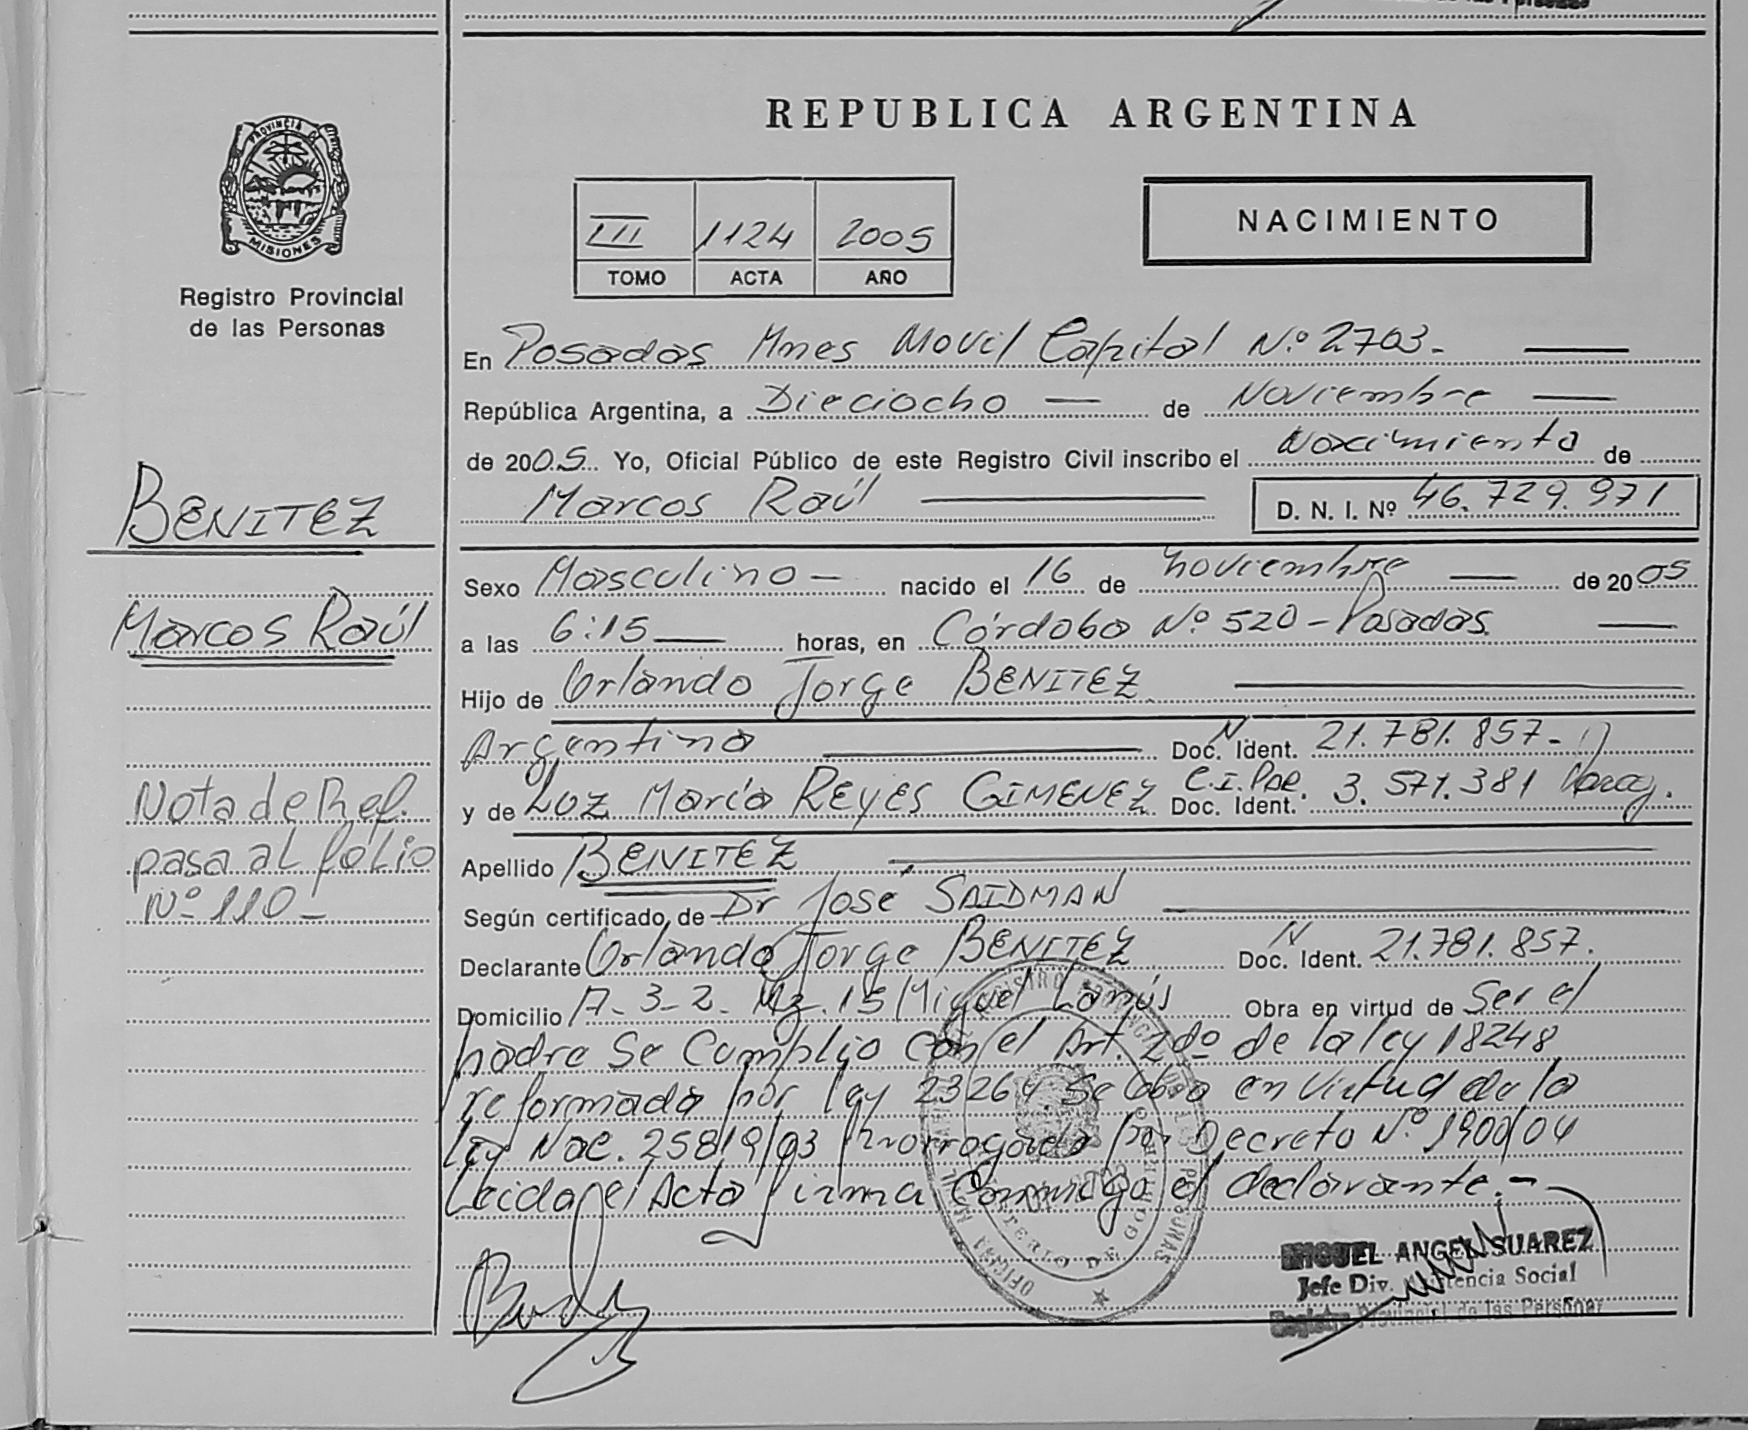 PROVINCIA DE
MISIONES
Registro Provincial
de las Personas
BENITEZ
Marcos Raúl
Nota de Ref.
pasa al fólio
Nº 110-
REPUBLICA ARGENTINA
III 1124 2005
TOMO ACTA AÑO
NACIMIENTO
En Posadas Mnes Movil Capital N.º 2703.-
República Argentina, a Dieciocho de Noviembre
de 2005. Yo, Oficial Público de este Registro Civil inscribo el Nacimiento de
Marcos Raúl D. N. I. Nº 46.729.971
Sexo Masculino - nacido el 16 de noviembre de 2005
a las 6:15 horas, en Córdoba Nº 520 - Posadas.
Hijo de Orlando Jorge BENITEZ
Argentino Doc. N. Ident. 21.781.857.-
y de Luz María REYES GIMENEZ C.I. Doc. Ident. 3.571.381 Parag.
Apellido BENITEZ
Según certificado de Dr José SAIDMAN
Declarante Orlando Jorge BENITEZ Doc. N Ident. 21.781.857.
Domicilio A-3-2. Mz. 15 Miguel Lanús Obra en virtud de Ser el
padre Se Cumplio con el Art. 2dº de la ley 18248
reformado por ley 23264. Se obra en virtud de la
Ley Nac. 25819/03 Prorrogada por Decreto Nº 1900/04
Leida el Acta firma Conmigo el declarante.-
MIGUEL ANGEL SUAREZ
Jefe Div. Asistencia Social
Registro Provincial de las Personas